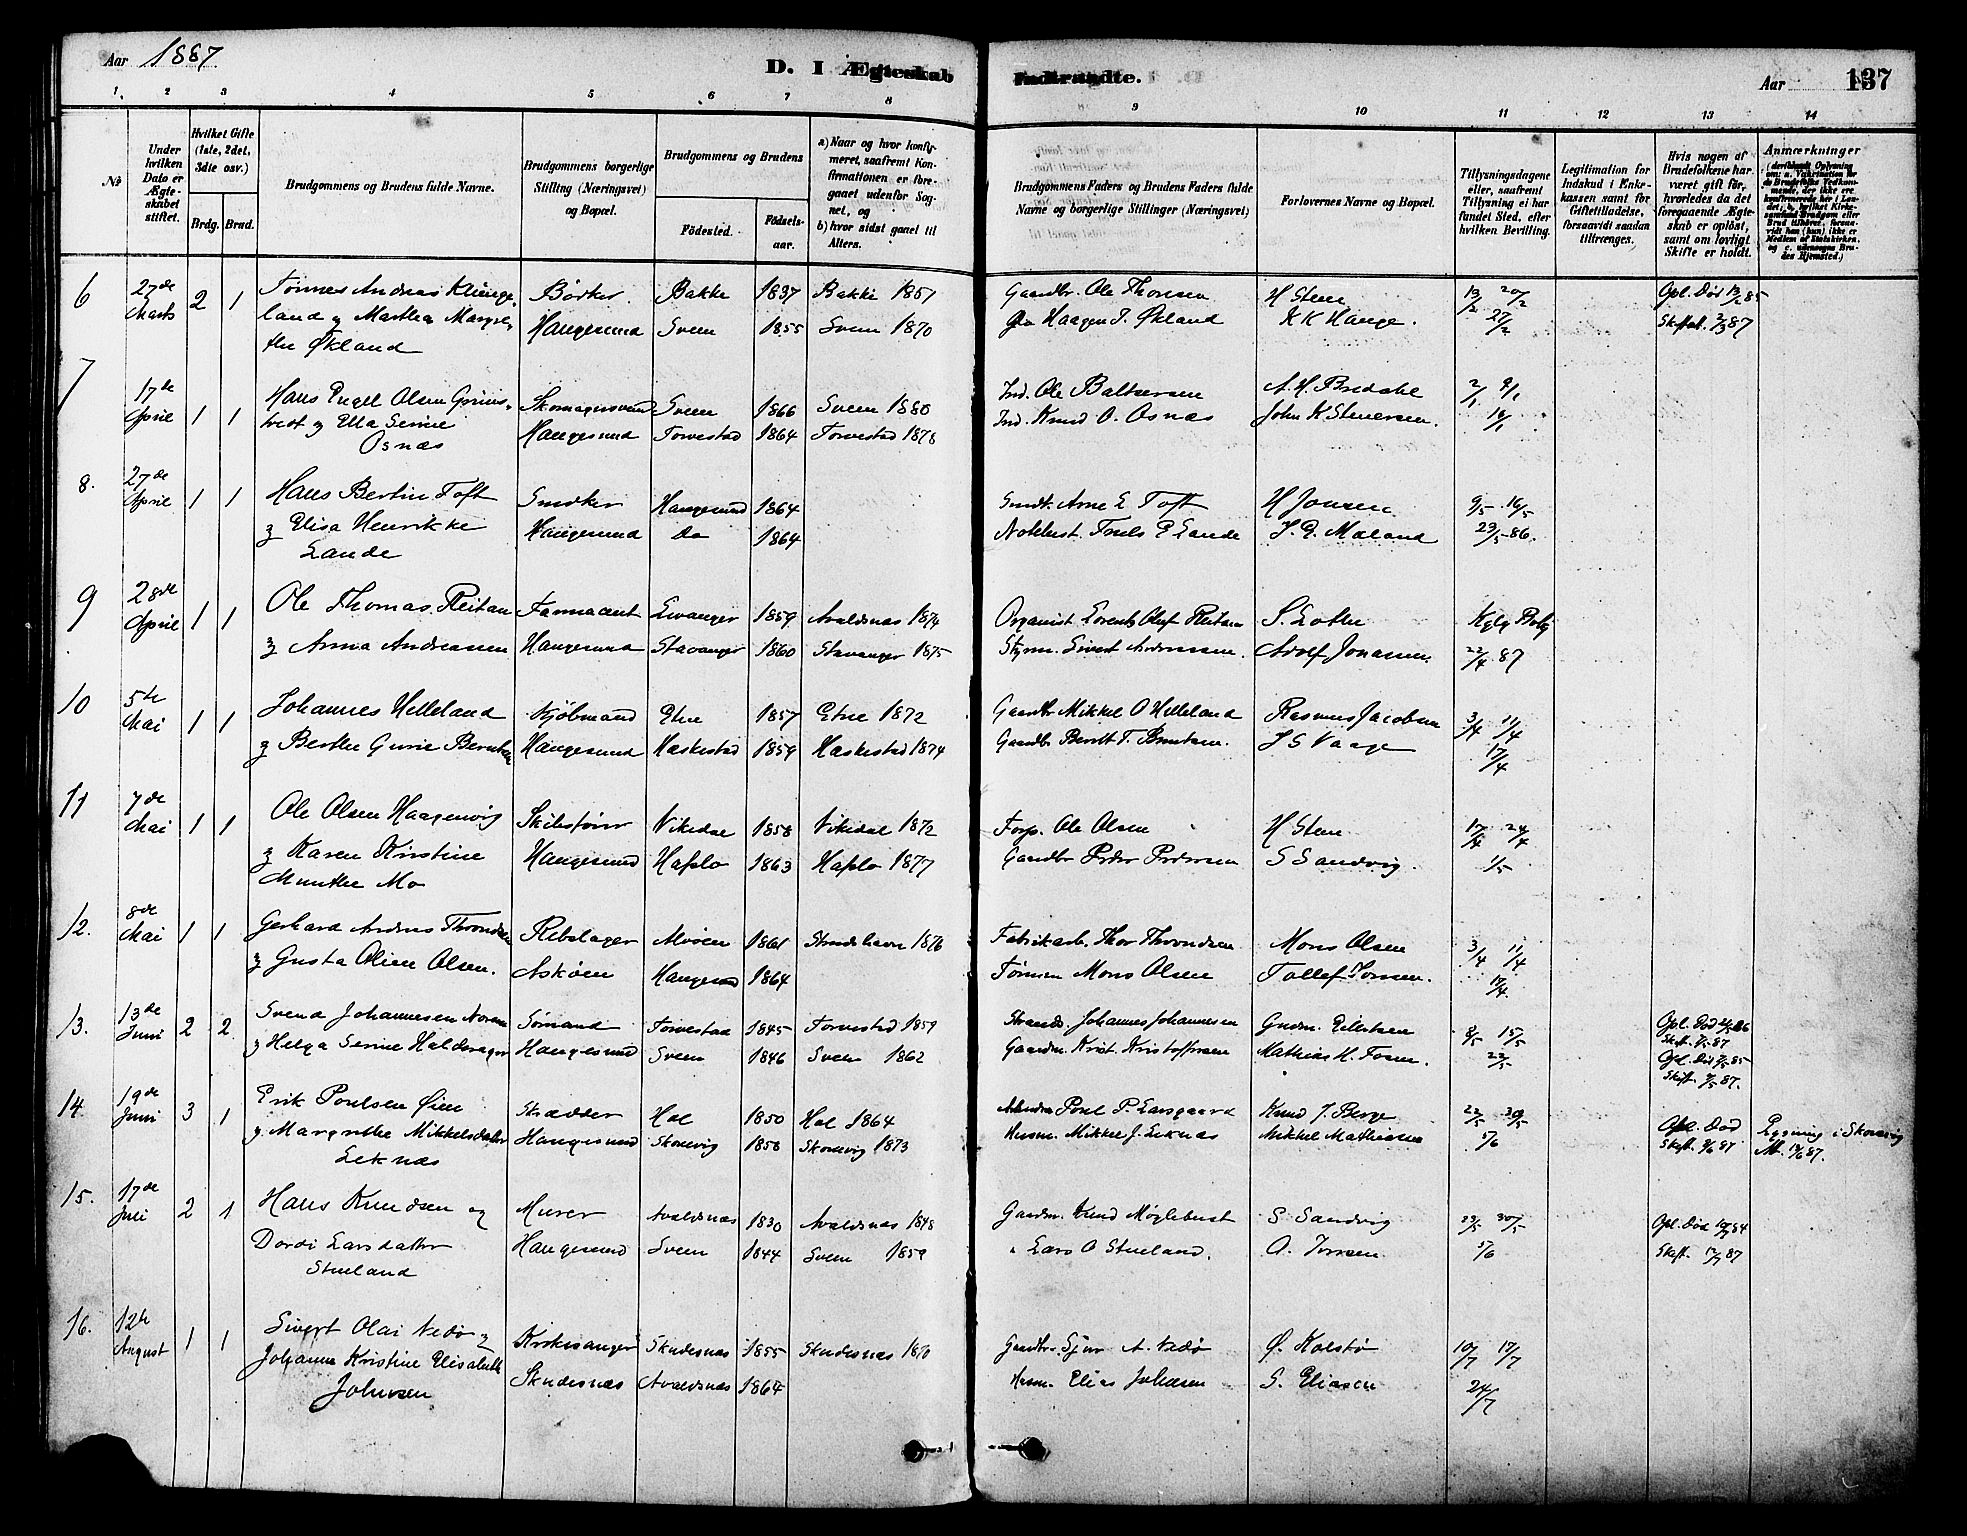 Aar 1887.
D. I Ægteskab Indtraadte.
Aar 137
1. 2 3 4 5 6 7 8 9 10 11 12 13 14
No
Under hvilken Dato er Ægteskabet stiftet.
Hvilket Gifte (1ste, 2det, 3die osv.)
Brdg. Brud.
Brudgommens og Brudens fulde Navne.
Brudgommens borgerlige Stilling (Næringsvei) og Bopæl.
Brudgommens og Brudens
Fødested. Fødselsaar.
a) Naar og hvor konfirmeret, saafremt Konfirmationen er foregaaet udenfor Sognet, og b) hvor sidst gaaet til Alters.
Brudgommens Faders og Brudens Faders fulde Navne og borgerlige Stillinger (Næringsvei)
Forlovernes Navne og Bopæl.
Tillysningsdagene eller, saafremt Tillysning ei har fundet Sted, efter hvilken Bevilling.
Legitimation for Indskud i Enkekassen samt for Giftetilladelse, forsaavidt saadan tiltrænges.
Hvis nogen af Brudefolkene har været gift før, hvorledes da det foregaaende Ægteskab er opløst, samt om lovligt Skifte er holdt.
Anmærkninger
6 27de Marts 2 1 Tønnes Andreas Klunge- Bødker Bakke 1837 Bakke 1851 Gaardbr. Ole Thonsen H Steen 13/2 20/2 Opl. Død 85
land og Marthea Margre- Haugesund Sveen 1855 Sveen 1870 Haagen T. Økland K K Hauge. 27/2 87
the Økland
7 17de April 1 1 Hans Engel Olsen Sveen 1866 Sveen 1880 Ind. Ole Baltsersen A. H. Bredahl 2/1 9/1
og Ella Serine Haugesund Torvestad 1864 Torvestad 1878 Ind. Knud O. Osnæs John K Stenersen. 16/1
Osnæs
8. 27de April 1 1 Hans Bertin Toft Snedker Haugesund 1864 Arne E Toft H Jonsen 9/5 16/5
og Elisa Henrikke Haugesund Do 1864 Lande J. G. Maland 23/5-86.
Lande
9 28de April 1 1 Ole Thomas Reitan Farmaceut Levanger 1859 Avaldsnæs 1874 Organist Lorents Oluf Reitan S. Lothe Kglg Bvlg
og Anna Andreassen Haugesund Stavanger 1860 Stavanger 1875 Styrm. Sivert Andreassen. Adolf Jonassen 22/4 87
10 5te Mai 1 1 Johannes Helleland Kjøbmand Etne 1857 Etne 1872 Gaardbr Mikkel O Helleland Rasmus Jacobsen 3/4 11/4
og Berthe Gurie Haugesund Haskestad 1859 Haskestad 1874 Gaardbr J S Vaage 17/4
11 7de Mai 1 1 Ole Olsen Haagenvig Vikedal 1858 Vikedal 1872 Forp. Ole Olsen H Steen 17/4 24/4
og Karen Kristine Haugesund Hafslo 1863 Hafslo 1877 Gaardbr Peder Pedersen S Sandvig 1/5
Munthe Mo
12. 8de Mai 1 1 Gerhard Andreas Throndsen Rebslager 1861 1876 Fabrikarb. Thor Throndsen Mons Olsen 3/4 11/4
og Gusta Oline Olsen. Askøen Haugesund 1864 Mons Olsen Tollef 17/4
13. 13de Juni 2 2 Svend Johannesen Sømand Torvestad 1845 Torvestad 1859 Strands. Johannes Johannesen Gudm. Eilertsen 8/5 15/5 Opl. Død 86
og Helga Serine Haugesund Sveen 1846 Sveen 1862 Gaardm. Krist. Kristoffersen Mathias H. Fosen. 22/5 Skift. 87 Opl. Død 85 Skift. 87.
14. 19de Juni 3 1 Erik Poulsen Øien Skrædder Hol 1850 Hol 1864 Poul P. Larsgaard Knud J. Berge 22/5 30/5 Opl. Død
og Margrethe Mikkelsdatter Haugesund Skonevig 1858 Skonevig 1873 Husm. Mikkel J. Leknæs Mikkel Mathiesen 5/6 Skift. 87 i Skonevig 87.
Leknæs
15. 17de Juli 2 1 Hans Knudsen og Murer Avaldsnæs 1830 Avaldsnæs 1848 Gaardm. Knud Møglebust S Sandvig 23/5 30/5 Opl. Død 84
Dordi Larsdatter Haugesund Sveen 1844 Sveen 1859 " Lars O Stueland. O. Iversen 5/6 Skift. 87
Stueland
16. 12te August 1 1 Sivert Olai Vedø og Kirkesanger Skudesnæs 1855 Skudesnæs 1870 Gaardbr. Sjur A. Vedø Ø. Kolstø 10/7 17/7
Johanna Kristine Elisabeth Skudesnæs Avaldsnæs 1864 Husm. Elias Johnsen S. Eliasen 24/7
Johnsen